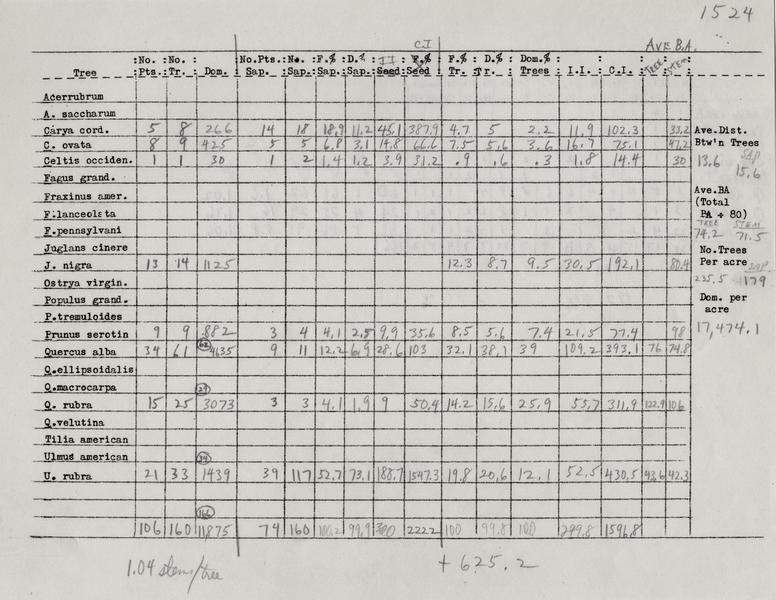 1524
C.I AVE B.A.
:No. :No. : :No.Pts.:No. :F.% :D.% :I I :F.% :F.% :D.% : Dom.% : : : TREE STEM
Tree :Pts.:Tr. : Dom. Sap. :Sap.:Sap.:Sap.:Seed:Seed :Tr. : Tr. : Trees : I.I. : C.I. :
Acerrubrum
A. saccharum
Carya cord. 5 8 266 14 18 18,9 11.2 45.1 387.9 4.7 5 2.2 11.9 102.3 33.2 Ave.Dist.
C. ovata 8 9 425 5 5 6.8 3.1 14.8 66.6 7.5 5.6 3.6 16.7 75.1 47.2 Btw'n Trees
Celtis occiden. 1 1 30 1 2 1.4 1.2 3.9 31.2 .9 .6 .3 1.8 14.4 30 13.6 SAP 15.6
Fagus grand.
Fraxinus amer. Ave.BA
F.lanceolata (Total
F.pennsylvani PA ÷ 80)
TREE STEM
74.2 71.5
Juglans cinere No.Trees
J. nigra 13 14 1125 12.3 8.7 9.5 30.5 192.1 80.4 Per acre
Ostrya virgin. 235.5 179
Populus grand. Dom. per
P.tremuloides acre
Prunus serotin 9 9 882 3 4 4.1 2.5 9.9 35.6 8.5 5.6 7.4 21.5 77.4 98 17,474.1
Quercus alba 34 61 4635 9 11 12.2 6.9 28.6 103 32.1 38.1 39 109.2 393.1 76 74.8
Q.ellipsoidalis
Q.macrocarpa 29
Q. rubra 15 25 3073 3 3 4.1 1.9 9 50.4 14.2 15.6 25.9 55.7 311.9 122.9 106
Q.velutina
Tilia american
Ulmus american 34
U. rubra 21 33 1439 39 117 52.7 73.1 188.7 1547.3 19.8 20.6 12.1 52.5 430.5 43.6 42.3
166
106 160 11,875 74 160 100.2 99.9 300 2222 100 99.8 100 299.8 1596.8
1.04 stems/tree + 625.2